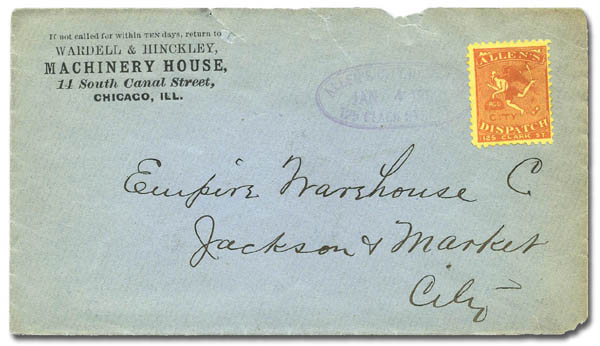 If not called for within TEN days, return to
WARDELL & HINCKLEY,
MACHINERY HOUSE,
14 South Canal Street,
CHICAGO, ILL.
ALLEN'S
JAN 4
125 CLARK ST
ALLEN'S
CITY
DISPATCH
125 CLARK ST.
Empire Warehouse C
Jackson & Market
City